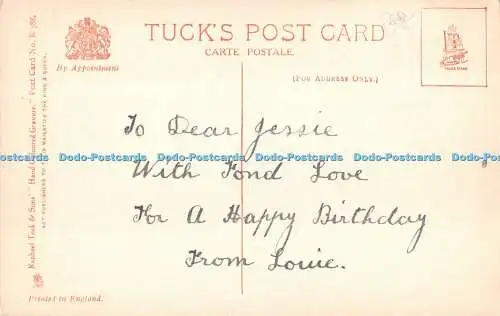 TUCK'S POST CARD
CARTE POSTALE.
By Appointment
(FOR ADDRESS ONLY.)
TRADE MARK
Raphael Tuck & Sons' "Hand Coloured Gravure." Post Card No. R 786.
ART PUBLISHERS TO THEIR MAJESTIES THE KING & QUEEN.
To Dear Jessie
Dodo-Postcards Dodo-Postcards Dodo-Postcards Dodo-Postcards
With Fond Love
For A Happy Birthday
From Louie.
Printed in England.